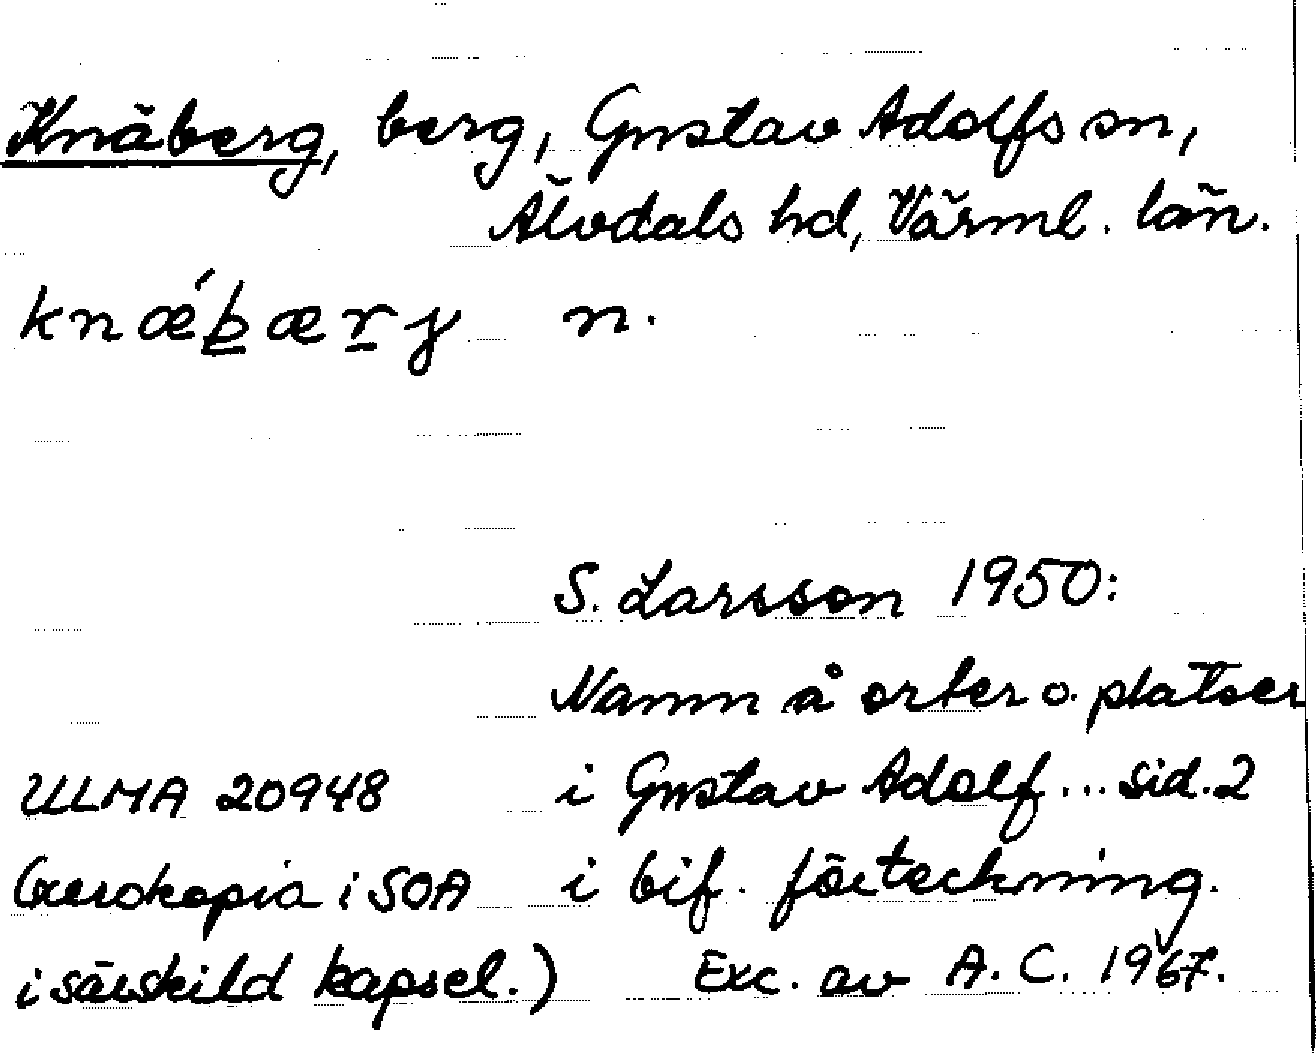 Knäberg, berg, Gustav Adolfs sn,
Älvdals hd, Värml. län.
knǽbærj n.
S. Larsson 1950:
Namn å orter o. platser
ULMA 20948 i Gustav Adolf... sid. 2
(xerokopia i SOA i bif. förteckning.
i särskild kapsel.) Exc. av A. C. 1967.